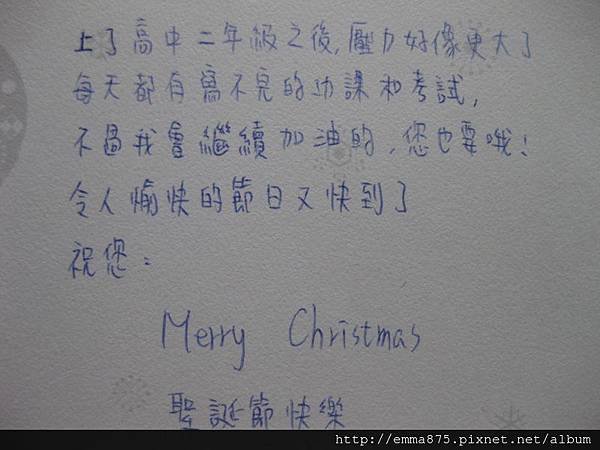 上了高中二年級之後,壓力好像更大了
每天都有寫不完的功課和考試,
不過我會繼續加油的,您也要哦!
令人愉快的節日又快到了
祝您:
Merry Christmas
聖誕節快樂
http://emma875.pixnet.net/album